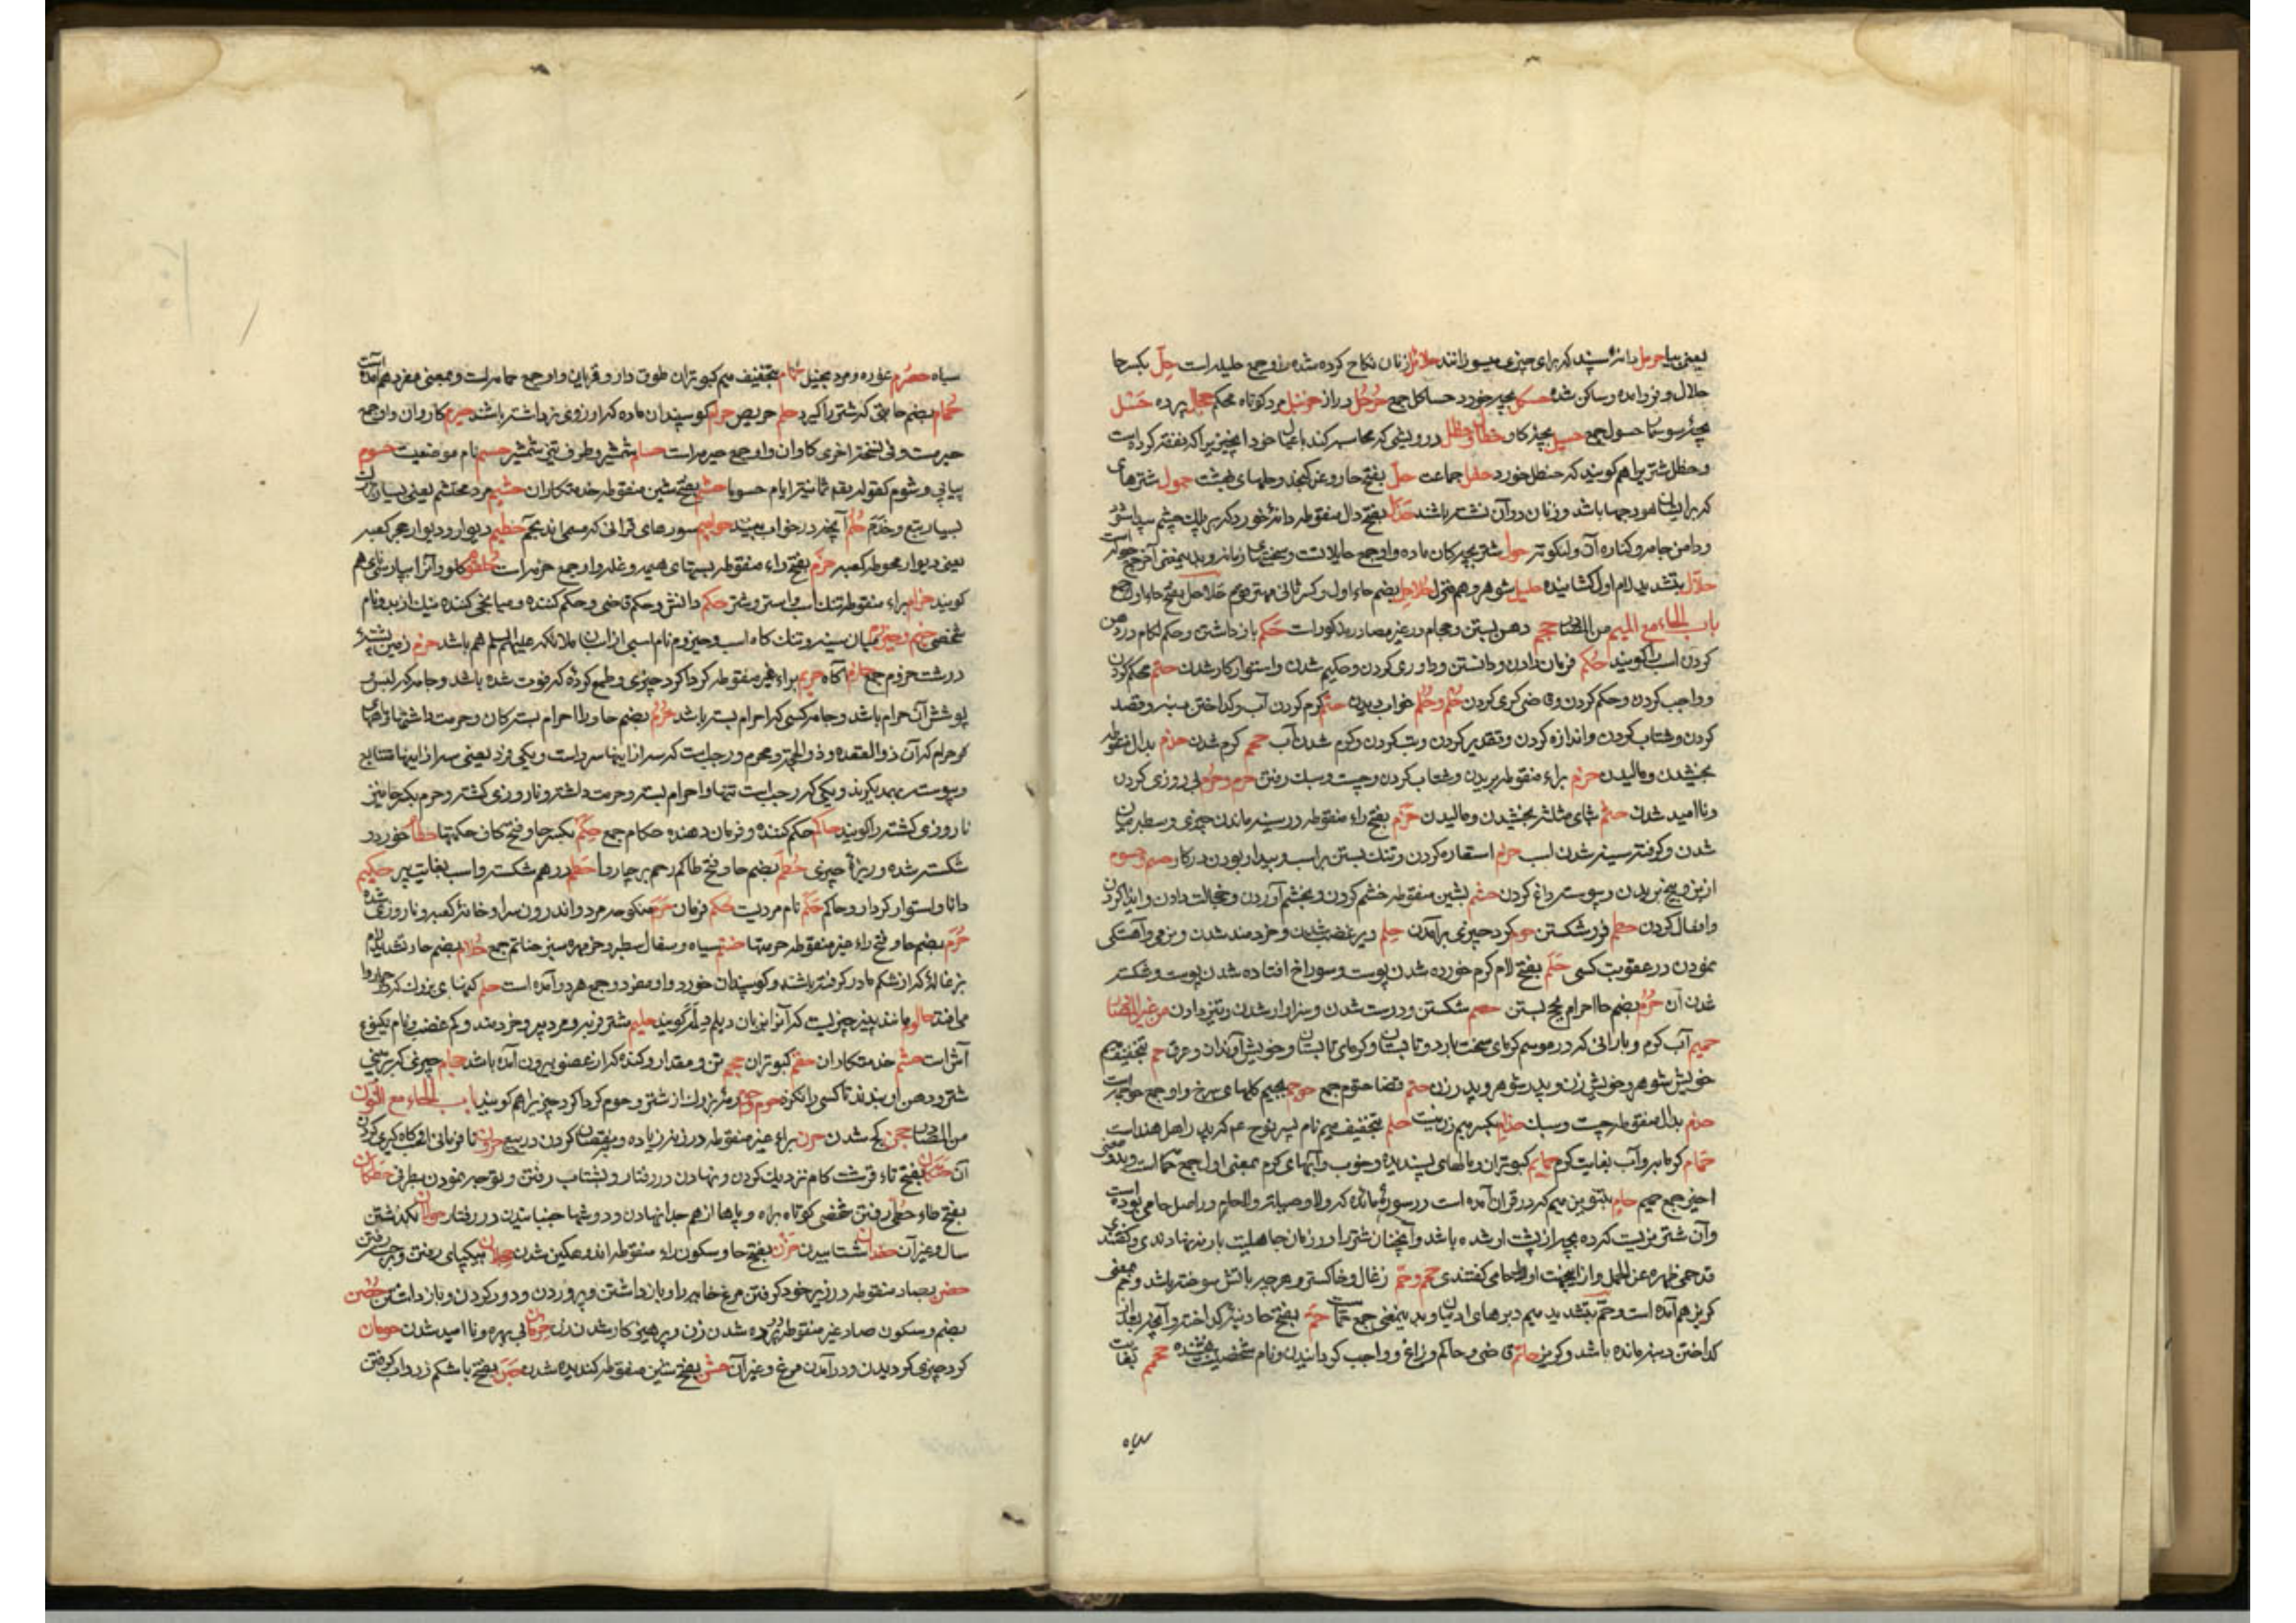 یعنی سیاه حرمل دانهٔ سپند که برای چیزی میسوزانند حلائل زنان نکاح کرده شده را و جمع حلیله است حِلّ بکسر حا
حلال و فرود آمده و ساکن شده حسکل بچهٔ خورد حساکل جمع حرجل دراز حزنبل مرد کوتاه محکم حجال پرده حسل
بچهٔ سوسمار حسول جمع حسیل بچهٔ گاو حظال و حظل درویشی که محاسبه کند با عیال خود بآنچیز که نفقه کرده است
و حظل شتریرا هم گویند که حنظل خورد حفل جماعت حلّ بفتح حا روغن کنجد و حلهای بهشت حمول شترهای
که بر ایشان هودجها باشد و زنان در آن نشسته باشند حذال بفتح دال منقوطه دانهٔ خورد که بر پلک چشم پیدا شود
و دامن جامه و کنارهٔ آن و نیکوتر حول شتر بچگان ماده و او جمع حایل است و سختیهای زمانه و بدینمعنی آخر جمع حوله است
حلّال بتشدید لام اول گشاینده حلیل شوهر و هم منزل حُلاحِل بضم حاء اول و کسر ثانی مهتر قوم حَلاحل بفتح حا باو جمع
باب الحاء مع المیم من المصادر حجم دهن بستن و حجام در غیر مصادر مذکور است حَکم باز داشتن و حکم لگام در دهن
کردن اسب را گویند حُکم فرمان دادن و دانستن و داوری کردن و حکیم شدن و استوار کار شدن حتم محکم کردن
و واجب کردن و حکم کردن و قاضی گری کردن حُلم و حُلُم خواب دیدن حمّ گرم کردن آب و گداختن پیه و قصد
کردن و شتاب کردن و اندازه کردن و تقدیر کردن و تب کردن و گرم شدن آب حمم گرم شدن حذم بدال منقوطه
بخشیدن و مالیدن حزم براء منقوطه بریدن و شتاب کردن و چست و سبک رفتن حرم و حرم بی روزی کردن
و ناامید شدن حثم بثای مثلثه بخشیدن و مالیدن حَزَم بفتح راء منقوطه در سینه ماندن چیزی و سطبر میان
شدن و کوفته سینه شدن اسب حزم استقاره کردن و تنک بستن بر اسب و بیدار بودن در کار حسم و حسوم
از بن و بیخ بریدن و پیوسته داغ کردن حشم بشین منقوطه خشم کردن و بخشم آوردن و خجالت دادن و ایذا کردن
و انفعال کردن حطم فرو شکستن حوم گرد چیزی برآمدن حلم دیر غضب شدن و خردمند شدن و نرمی و آهستگی
نمودن در عقوبت کسی حَلَم بفتح لام کرم خورده شدن پوست و سوراخ افتاده شدن پوست و شکسته
شدن آن حُرُم بضم حا احرام بحج بستن حصم شکستن و درست شدن و سزاوار شدن و تیز دادن من غیر المصادر
حمیم آب گرم و بارانی که در موسم گرمای سخت بارد و تابستان و گرمای تابستان و خویش آوندان و عرق حم بتخفیف میم
خویش شوهر و خویش زن و پدر شوهر و پدر زن حتم قضا حتوم جمع حوجم بجیم گلهای سرخ و او جمع حوجمه است
حذم بدال منقوطه چست و سبک حذام بکسر میم زنیست حام بتخفیف میم نام پسر نوح عم که پدر اهل هند است
حمّام گرمابه و آب بغایت گرم حمایم کبوتران و مالهای پسندیده و خوب و آبهای گرم بمعنی اول جمع حمامه است و بدو معنی
اخیر جمع حمیم حام بتنوین میم که در قرآن آمده است در سورهٔ مائده که ولا وصیلة ولا حام در اصل حامی بوده است
و آن شتر نریست که ده بچه از پشت او شده باشد و آنچنان شتر را در زمان جاهلیت بار ننهادندی و گفتند
قد حمی ظهره عن الحمل و از اینجهت او را حامی گفتندی حمم و حم زغال و خاکستر و هرچه بآتش سوخته باشد و حم بمعنی
گریز هم آمده است و حمّ بتشدید میم دبرهای ادمیان و بدینمعنی جمع حمّاست حَمّ بفتح حا دنبهٔ گداخته و آنچه بعد از
گداختن دنبه مانده باشد و گریز حاتم قاضی و حاکم و زاغ و واجب گردانیدن و نام شخصیست بخشنده حمحم بغایت
سیاه
سیاه حصرم غوره و مرد بخیل حَمام بتخفیف میم کبوتران طوق دار و قربان و او جمع حمامه است و بمعنی مفرد هم آمده است
حُمام بضم حا تبی که شتر را گیرد حلم حریص حرام گوسپندان ماده که آرزوی نر داشته باشند حیرم گاو وان و او جمع
حیرمت و فی نسخة اخری گاوان و او جمع حیرمه است حسام شمشیر و طرف تیزی شمشیر حسم نام موضعیست حسوم
پیاپی و شوم کقوله تعالی ثمانیة ایام حسوما حشم بفتح شین منقوطه خدمتکاران حشیم مرد محتشم یعنی بسیار
بسیار تبع و خدم حُلم آنچه در خواب بینند حوامیم سورهای قرآنی که مسمی اند بحم حطیم دیوار و دیوار حجر کعبه
یعنی دیوار محوطه کعبه حزم بفتح راء منقوطه بستهای هیمه و غله و او جمع حزمه است حلقوم گلو و آنرا بپارسی نای هم
گویند حزام براء منقوطه تنک اسب و استر و شتر حکم دانش و حکم قاضی و حکم کننده و میانجی کننده نیک از بد و نام
شخصی حزیم و حیزوم میان سینه و تنک گاه اسب و حیزوم نام اسبی از اسبان ملائکه علیهم السلم هم باشد حزم زمین پشتهٔ
درشت حزوم جمع حازم آگاه حریم براء غیر منقوطه گرداگرد چیزی و طمع کرده که فوت شده باشد و جامه که لبس و
پوشش آن حرام باشد و جامه کسی که احرام بسته باشد حُرُم بضم حا و را احرام بستگان و حرمت داشتها و ماههای
حرام که آن ذوالقعده و ذوالحجه و محرم و رجب است که سه از اینها سرد است و یکی فرد یعنی سه از اینها متتابع
و پیوسته بهم دیگرند و یکی که رجب است تنها و احرام بسته و حرمت داشته و ناروزی گشته و حرم بکسر حا نیز
ناروزی گشته را گویند حاکم حکم کننده و فرمان دهنده حکام جمع حِکَم بکسر حا و فتح کاف حکمتها حطام خورد در
شکسته شده و ریزهٔ چیزی حُطَم بضم حا و فتح طا کم رحم بر چاروا حَطِم درهم شکسته و اسب بغایت پیر حکیم
دانا و استوار کردار و حاکم حَکَم نام مردیست حُکم فرمان حَرَم منکوحهٔ مرد و اندرون سرا و خانهٔ کعبه و ناروزی شده
حُرَم بضم حا و فتح راء غیر منقوطه حرمتها حنتم سیاه و سفال سطبر و خر مهرهٔ سبز حناتم جمع حُلّام بضم حا و تشدید لام
بزغاله که از شکم مادر گرفته باشند و گوسپندان خورد و او مفرد و جمع هر دو آمده است حلم کنهای بزرک که چاروا را
می افتد حالوم مانند پنیر چیزیست که آنرا بزبان دیلم دیلمر گویند حلیم شتر فربه و مرد پیر و خردمند و کم غضب و نام یکنوع
آش است حشم خدمتکاران حقم کبوتران حجم تن و مقدار و کنده که از عضو بیرون آمده باشد حجام چیزی که بر بینی
شتر و دهن او بندند تا کسی را نگزد حوم رمهٔ بزرک از شتر و حوم گرداگرد چیز را هم گویند باب الحاء مع النون
من المصادر حجن کج شدن حرن براء غیر منقوطه در زینه زیاده و نقصان کردن در بیع حرون نافرمانی
آن حتکان بفتح تاء قرشت گام نزدیک کردن و نهادن در رفتار و بشتاب رفتن و توجه نمودن بطرفی حظلان
بفتح طاء حطی رفتن شخصی کوتاه براه و پاها از هم جدا نهادن و دوشها جنبانیدن در رفتار حولان گذشتن
سال و غیر آن حفدان شتابیدن حَزن بفتح حا و سکون راء منقوطه اندوهگین شدن حجلان بیکپای رفتن و برجستن
حضن بضاد منقوطه در زیر خود گرفتن مرغ خایه را و باز داشتن و پروردن و دور کردن و باز داشتن حُصن
بضم و سکون صاد غیر منقوطه در پرده شدن زن و پرهیزکار شدن زن حرمان بی بهره و ناامید شدن حومان
گرد چیزی گردیدن و در آمدن مرغ و غیر آن حشن بفتح شین منقوطه گندیده شدن حَبَن بفتح با شکم زرداب گرفتن